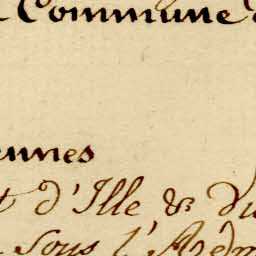 Commune
ennes
t d'Ille &
Sous l'